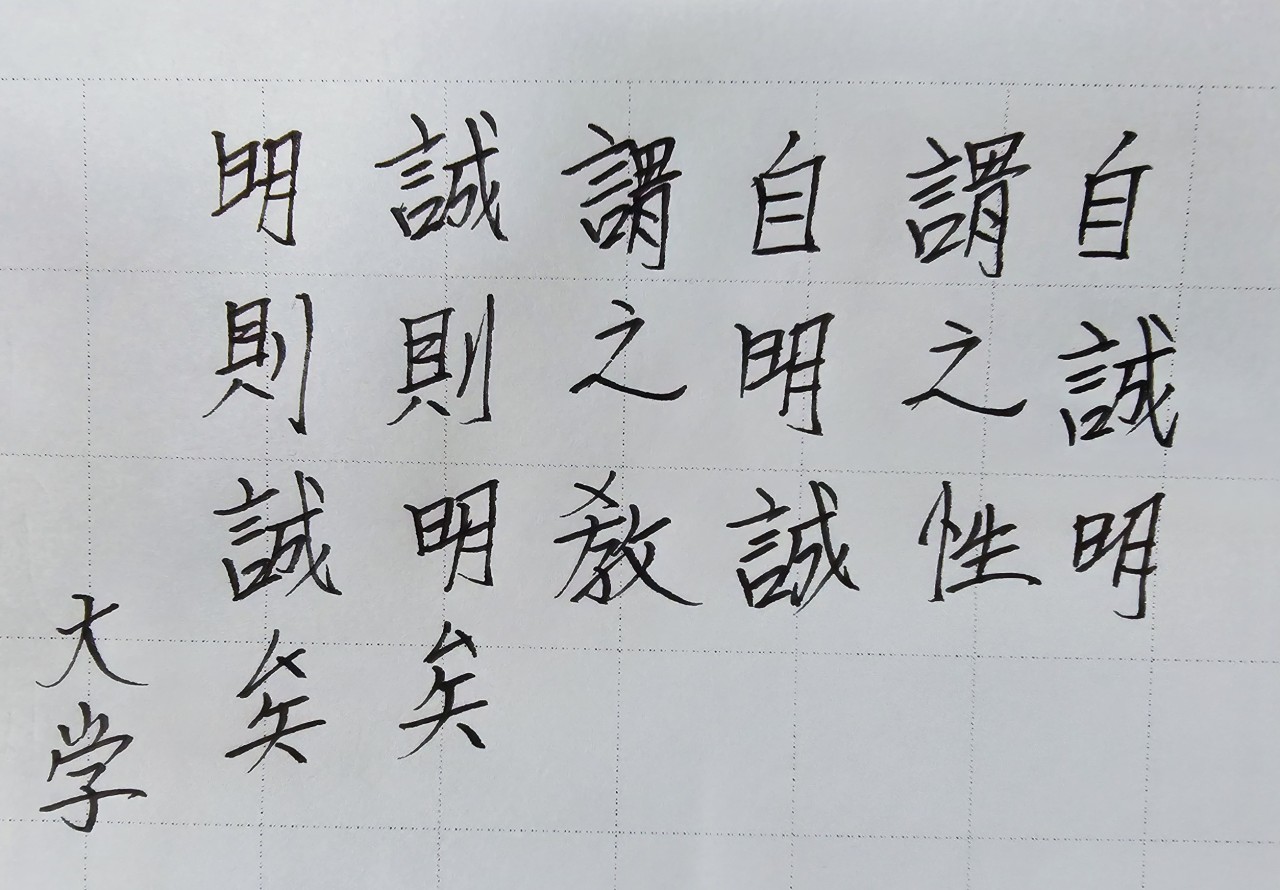 自誠明
謂之性
自明誠
謂之教
誠則明矣
明則誠矣
大学